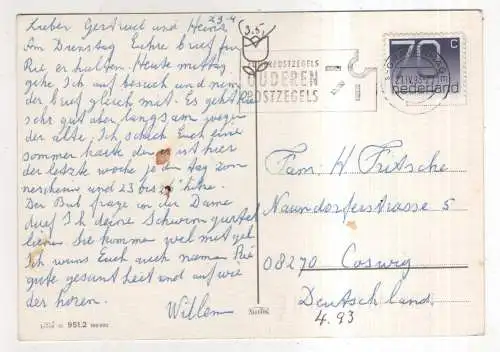 Lieber Gertrud und Heinz
23-4
Am Dienstag Euhre brief für
Rie erhalten. Heute mittag
gehe Ich auf besuch und neme
der brief gleich mit. Es geht Rie
sehr gut aber langsam wegen
der alte. Ich schick Euch eine
sommer karte den es ist hier
der letzte woche je den tag zon
neschein und 23 bis 24 hitze.
Der But frage von der Dame
darf Ich deine Schwim gurtel
Sie komme weil mit gel
Ich wuns Euch auch namen Rie
gute gesunt heit und auf wie
der horen.
Willem
951.2
3.5
POSTZEGELS
OUDEREN
POSTZEGELS
70 c
nederland
Fam: W Fritsche
Naundorferstrasse 5
08270 Coswig
Deutschland
4.93